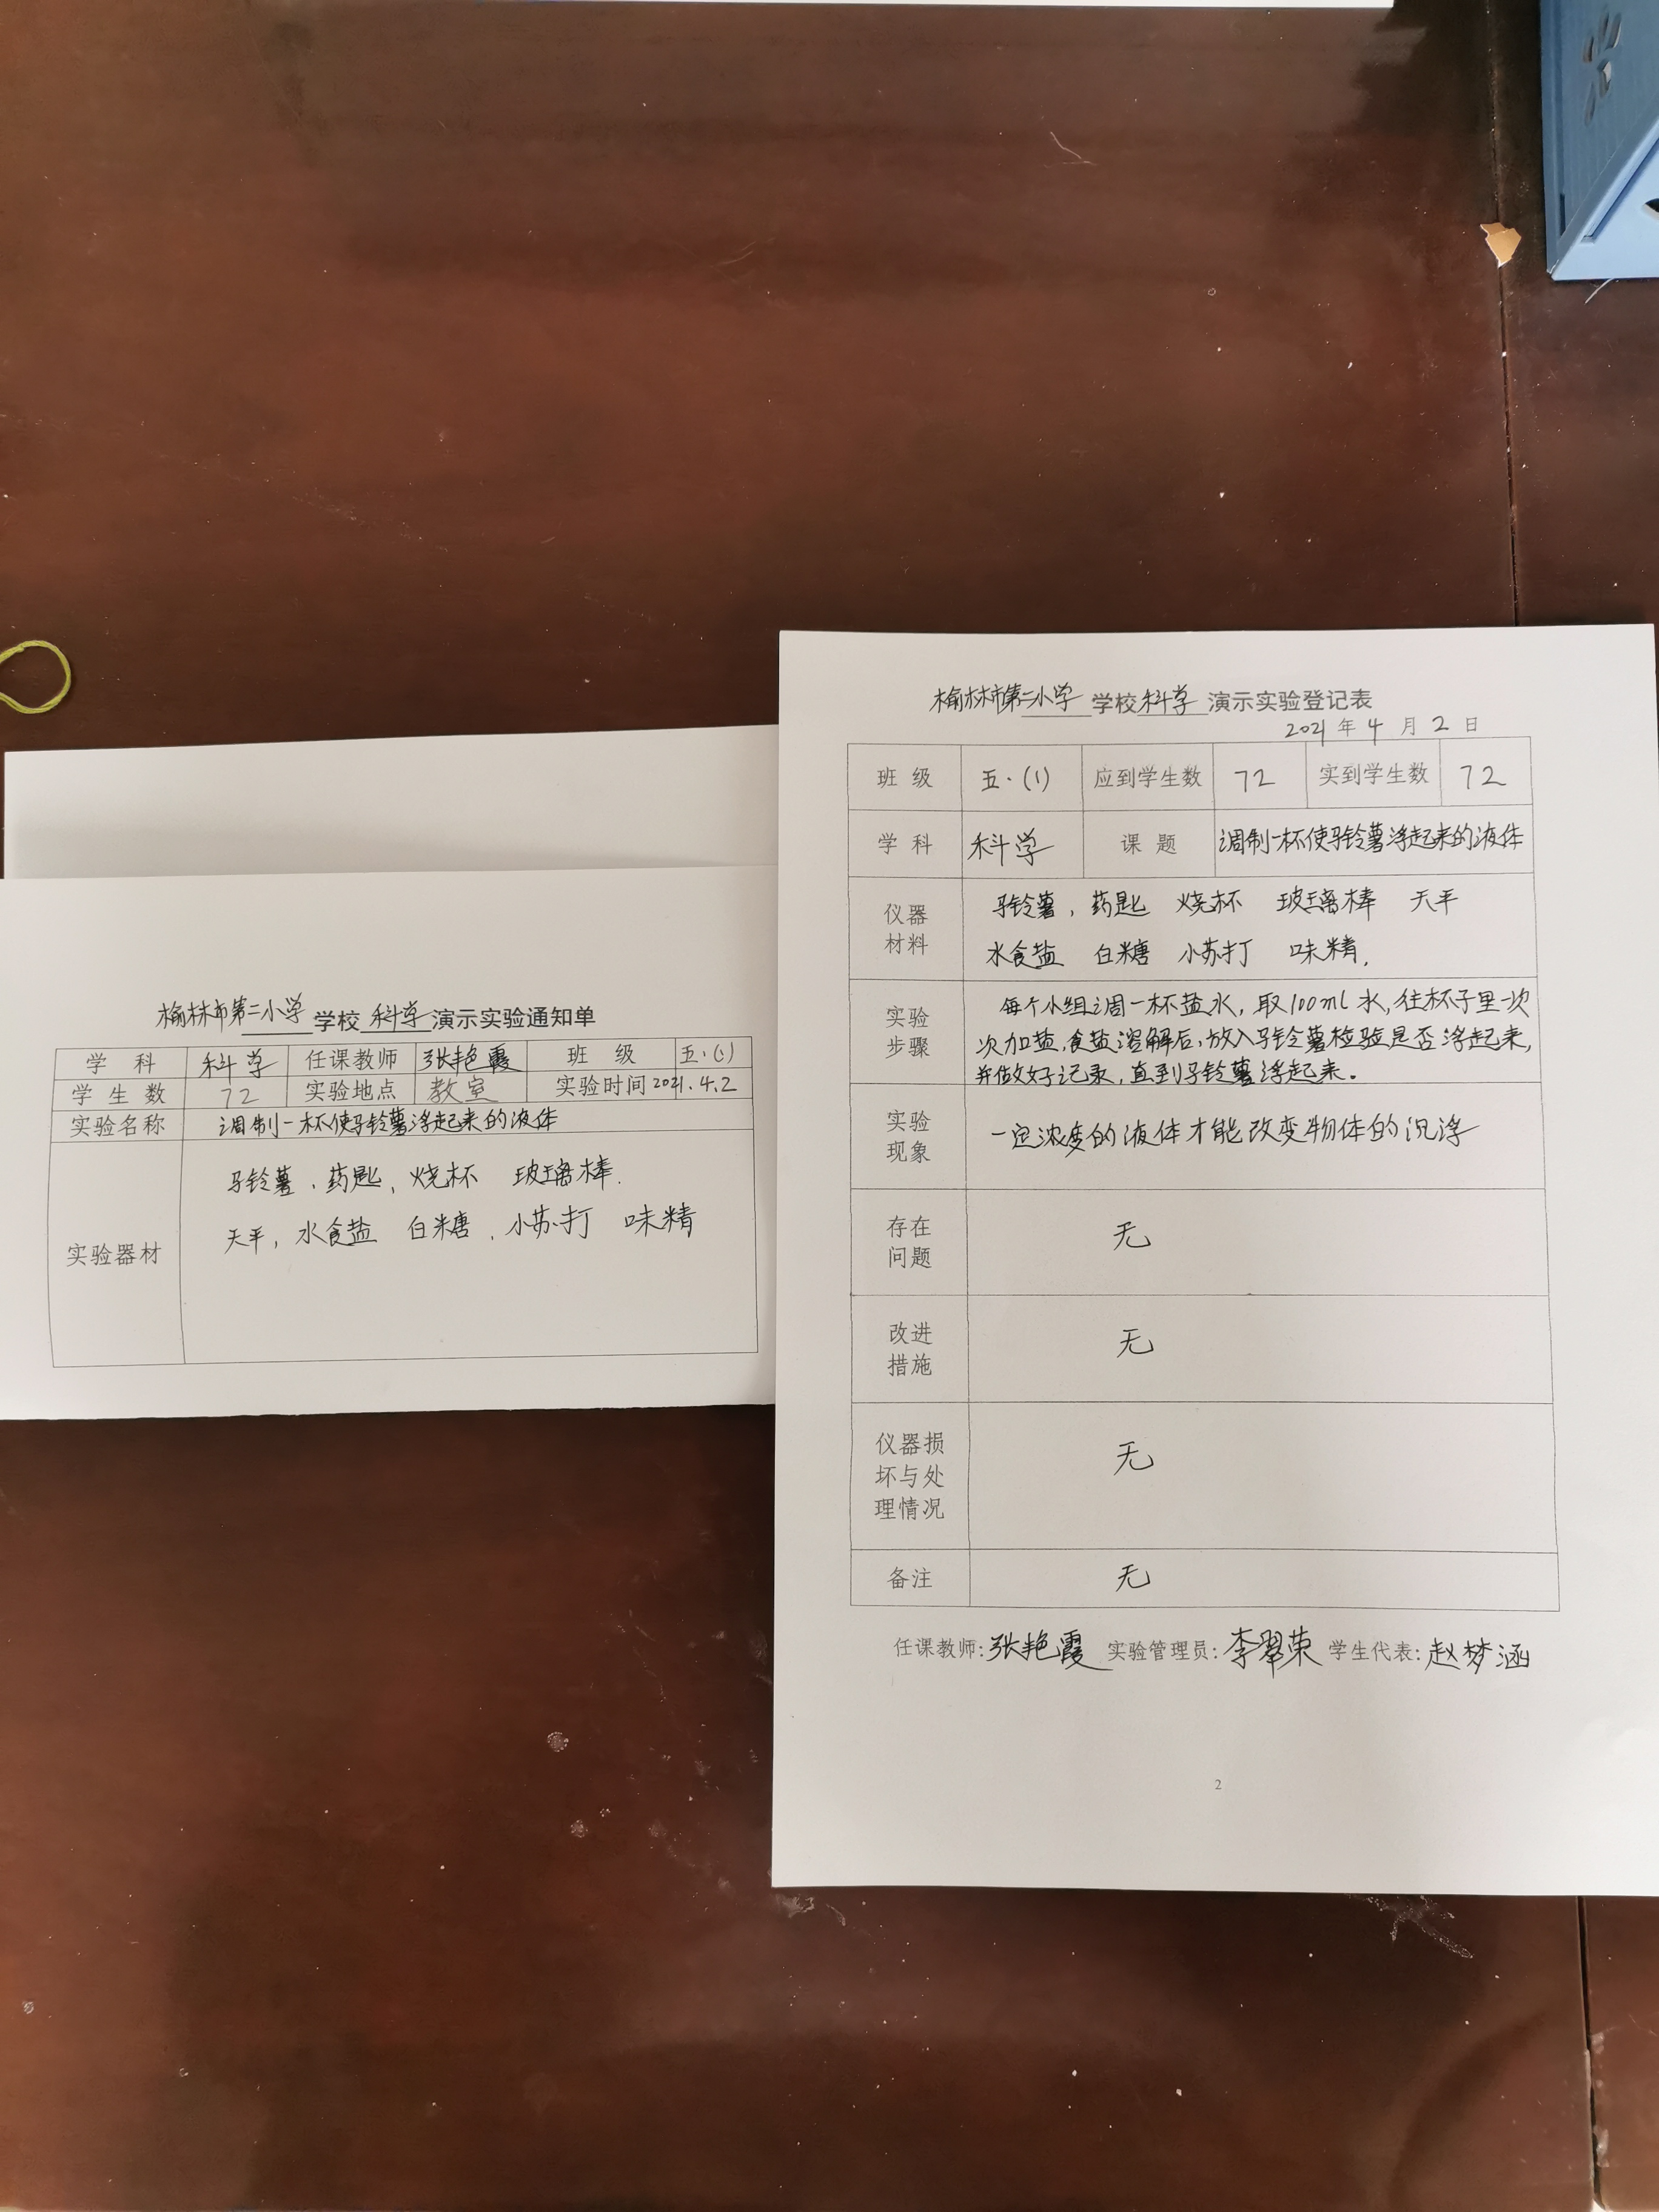 榆林市第二小学 学校 科学 演示实验通知单
学 科 科学 任课教师 张艳霞 班 级 五·(1)
学生数 72 实验地点 教室 实验时间 2021.4.2
实验名称 调制一杯使马铃薯浮起来的液体
马铃薯、药匙、烧杯 玻璃棒.
天平, 水食盐 白糖、小苏打 味精
实验器材
榆林市第二小学 学校 科学 演示实验登记表
2021 年 4 月 2 日
班 级 五·(1) 应到学生数 72 实到学生数 72
学 科 科学 课 题 调制一杯使马铃薯浮起来的液体
仪器
材料
马铃薯, 药匙 烧杯 玻璃棒 天平
水食盐 白糖 小苏打 味精.
实验
步骤
每个小组调一杯盐水, 取100ml水, 往杯子里一次
次加盐,食盐溶解后,放入马铃薯检验是否浮起来,
并做好记录, 直到马铃薯浮起来。
实验
现象
一定浓度的液体才能改变物体的沉浮
存在
问题
无
改进
措施
无
仪器损
坏与处
理情况
无
备注 无
任课教师:张艳霞 实验管理员:李翠荣 学生代表:赵梦涵
2